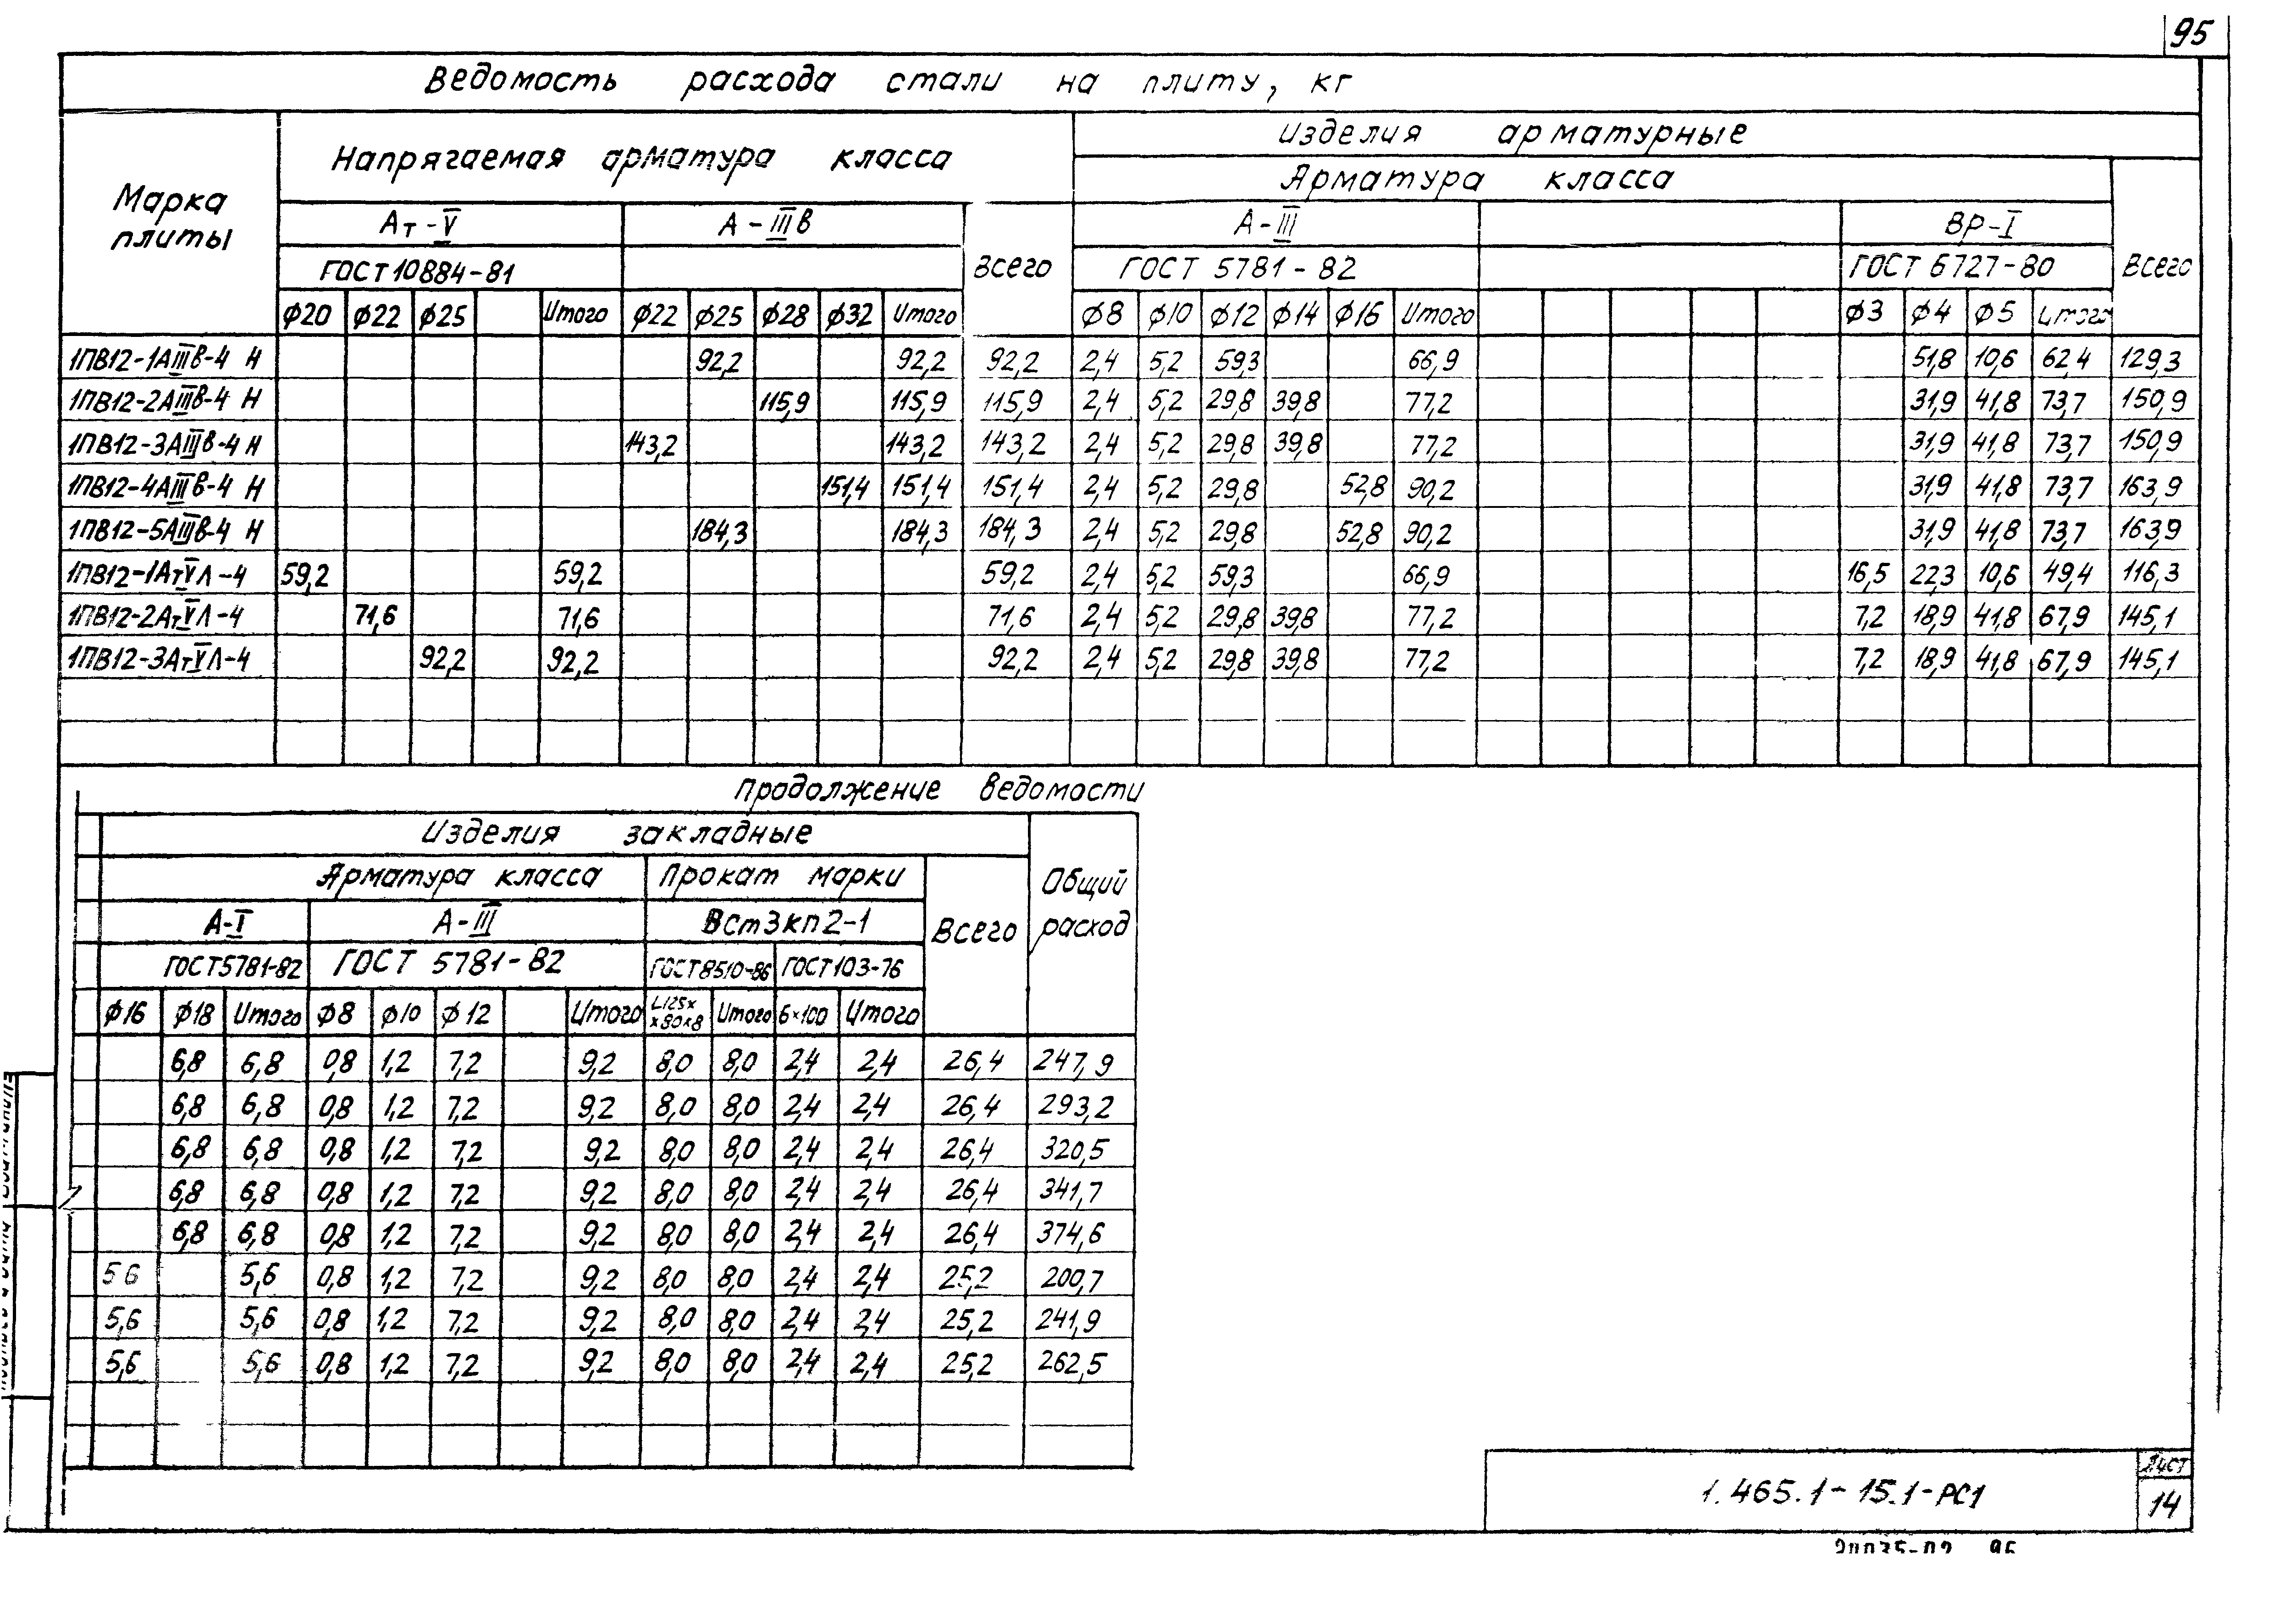 95
Ведомость расхода стали на плиту, кг
Марка плиты
Напрягаемая арматура класса
Изделия арматурные
Арматура класса
Ат-V А-IIIв Всего А-III Вр-I Всего
ГОСТ 10884-81 ГОСТ 5781-82 ГОСТ 6727-80
ф20 ф22 ф25 Итого ф22 ф25 ф28 ф32 Итого ф8 ф10 ф12 ф14 ф16 Итого ф3 ф4 ф5 Итого
1ПВ12-1АIIIв-4 Н 92,2 92,2 92,2 2,4 5,2 59,3 66,9 51,8 10,6 62,4 129,3
1ПВ12-2АIIIв-4 Н 115,9 115,9 115,9 2,4 5,2 29,8 39,8 77,2 31,9 41,8 73,7 150,9
1ПВ12-3АIIIв-4 Н 143,2 143,2 143,2 2,4 5,2 29,8 39,8 77,2 31,9 41,8 73,7 150,9
1ПВ12-4АIIIв-4 Н 151,4 151,4 151,4 2,4 5,2 29,8 52,8 90,2 31,9 41,8 73,7 163,9
1ПВ12-5АIIIв-4 Н 184,3 184,3 184,3 2,4 5,2 29,8 52,8 90,2 31,9 41,8 73,7 163,9
1ПВ12-1АтVЛ-4 59,2 59,2 59,2 2,4 5,2 59,3 66,9 16,5 22,3 10,6 49,4 116,3
1ПВ12-2АтVЛ-4 71,6 71,6 71,6 2,4 5,2 29,8 39,8 77,2 7,2 18,9 41,8 67,9 145,1
1ПВ12-3АтVЛ-4 92,2 92,2 92,2 2,4 5,2 29,8 39,8 77,2 7,2 18,9 41,8 67,9 145,1
Продолжение ведомости
Изделия закладные
Арматура класса Прокат марки Всего Общий расход
А-I А-III ВСт3кп2-1
ГОСТ5781-82 ГОСТ 5781-82 ГОСТ8510-86 ГОСТ103-76
ф16 ф18 Итого ф8 ф10 ф12 Итого L125x x80x8 Итого 6x100 Итого
6,8 6,8 0,8 1,2 7,2 9,2 8,0 8,0 2,4 2,4 26,4 247,9
6,8 6,8 0,8 1,2 7,2 9,2 8,0 8,0 2,4 2,4 26,4 293,2
6,8 6,8 0,8 1,2 7,2 9,2 8,0 8,0 2,4 2,4 26,4 320,5
6,8 6,8 0,8 1,2 7,2 9,2 8,0 8,0 2,4 2,4 26,4 341,7
6,8 6,8 0,8 1,2 7,2 9,2 8,0 8,0 2,4 2,4 26,4 374,6
5 6 5,6 0,8 1,2 7,2 9,2 8,0 8,0 2,4 2,4 25,2 200,7
5,6 5,6 0,8 1,2 7,2 9,2 8,0 8,0 2,4 2,4 25,2 241,9
5,6 5,6 0,8 1,2 7,2 9,2 8,0 8,0 2,4 2,4 25,2 262,5
1.465.1-15.1-РС1
Лист
14